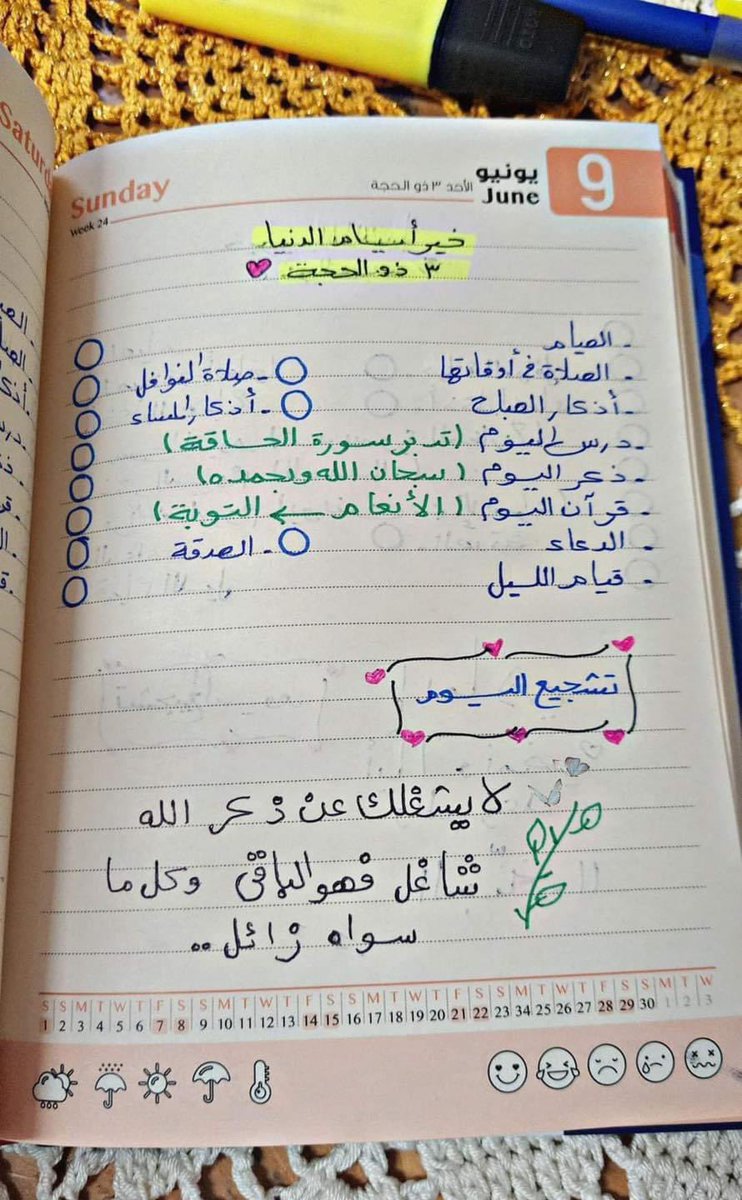 Saturd
Sunday
Week 24
الأحد ٣ ذو الحجة
يونيو
June
9
خير أيام الدنيا
٣ ذو الحجة
- الصيام
- الصلاة في أوقاتها - صلاة النوافل
- أذكار الصباح - أذكار المساء
- درس اليوم (تدبر سورة الحاقة)
- ذكر اليوم (سبحان الله وبحمده)
- قرآن اليوم (الأنعام ← التوبة)
- الدعاء - الصدقة
- قيام الليل
تشجيع اليوم
لا يشغلك عن ذكر الله
شاغل فهو الباقي وكل ما
سواه زائل ..
S S M T W T F S S M T W T F S S M T W T F S S M T W T F S S M T W
1 2 3 4 5 6 7 8 9 10 11 12 13 14 15 16 17 18 19 20 21 22 23 24 25 26 27 28 29 30 1 2 3